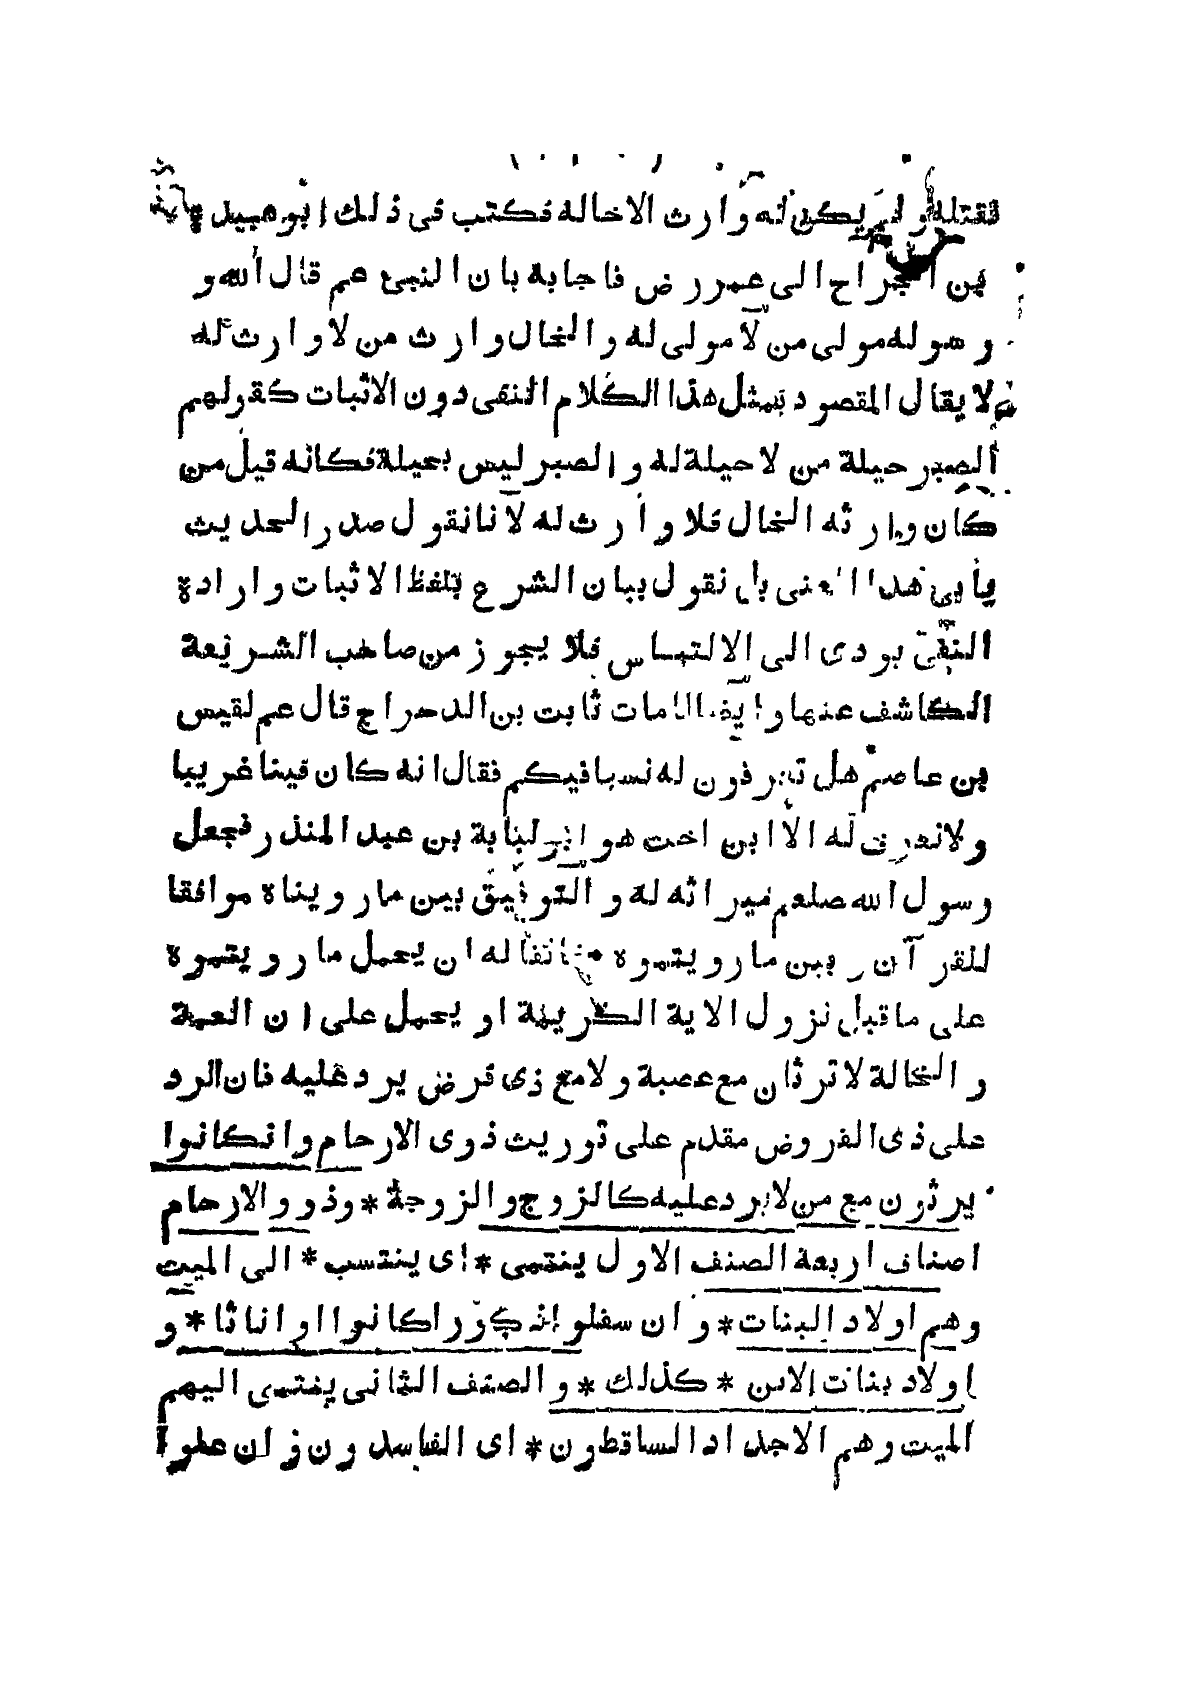 فقتله و لم يكن له وارث الا خاله فكتب فى ذلك ابو عبيدة
بن الجراح الى عمر رض فاجابه بان النبى عم قال الله و
رسوله مولى من لا مولى له و الخال وارث من لا وارث له
لا يقال المقصود بمثل هذا الكلام النفى دون الاثبات كقولهم
الصبر حيلة من لا حيلة له و الصبر ليس بحيلة فكانه قيل من
كان وارثه الخال فلا وارث له لانا نقول صدر الحديث
يأبى هذا المعنى بل نقول بيان الشرع بلفظ الاثبات و ارادة
النفى يودى الى الالتباس فلا يجوز من صاحب الشريعة
الكاشف عنها و ايضا لما مات ثابت بن الدحراج قال عم لقيس
بن عاصم هل تعرفون له نسبا فيكم فقال انه كان فينا غريبا
و لا نعرف له الا ابن اخت هو ابو لبابة بن عبد المنذر فجعل
رسول الله صلعم ميراثه له و التوفيق بين ما رويناه موافقا
للقرآن و بين ما رويتموه مخالفا له ان يحمل ما رويتموه
على ما قبل نزول الاية الكريمة او يحمل على ان العمة
و الخالة لا ترثان مع عصبة و لا مع ذى فرض يرد عليه فان الرد
على ذى الفروض مقدم على توريث ذوى الارحام و ان كانوا
يرثون مع من لا يرد عليه كالزوج و الزوجة * وذوو الارحام
اصناف اربعة الصنف الاول ينتمى * اى ينتسب * الى الميت
وهم اولاد البنات * و ان سفلوا ذكورا كانوا او اناثا * و
اولاد بنات الابن * كذلك * و الصنف الثانى ينتمى اليهم
الميت وهم الاجداد الساقطون * اى الفاسدون و ان علوا